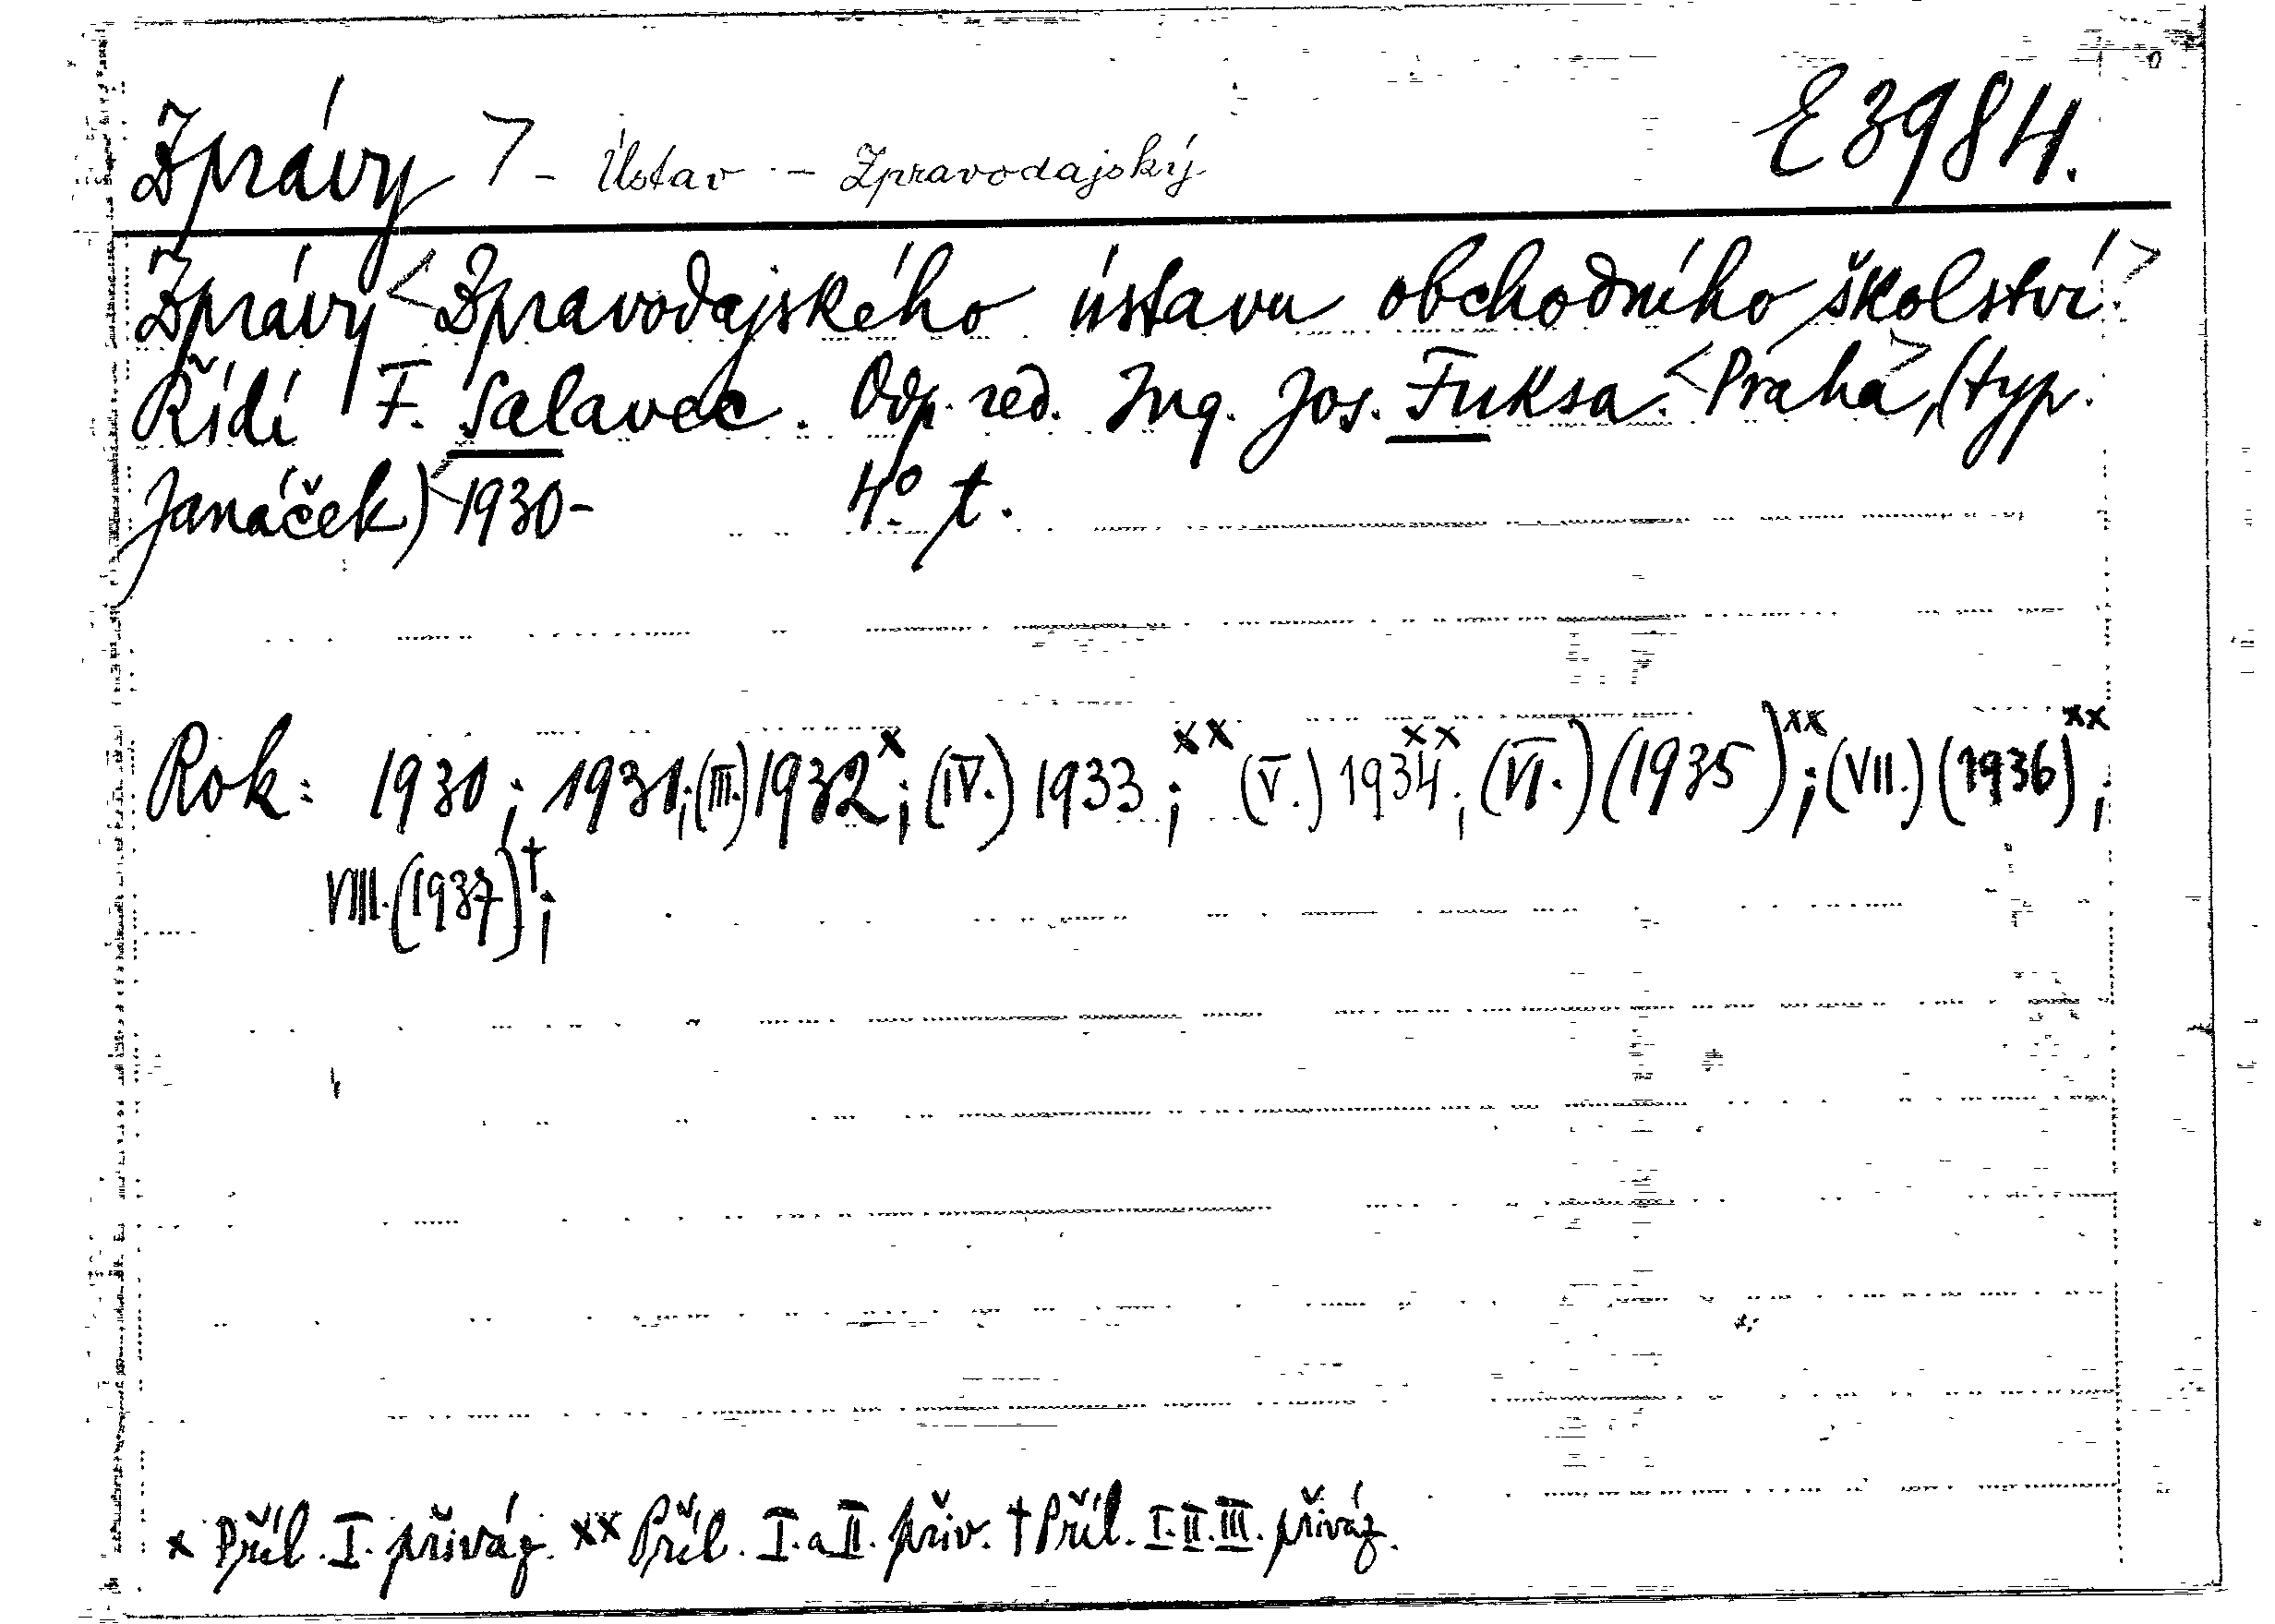 Zprávy > - Ústav - Zpravodajský E 3984.
Zprávy <Zpravodajského ústavu obchodního školství.>
Řídí F. Salavec. Odp. red. Ing. Jos. Fuksa. <Praha>, (typ.
Janáček) <1930- 4° t.
Rok: 1930; 1931; (III.) 1932x; (IV.) 1933; xx (V.) 1934xx; (VI.) (1935)xx; (VII.) (1936)xx;
VIII. (1937)†;
x Příl. I. přiváz. xx Příl. I. a II. přiv. † Příl. I. II. III. přiváz.